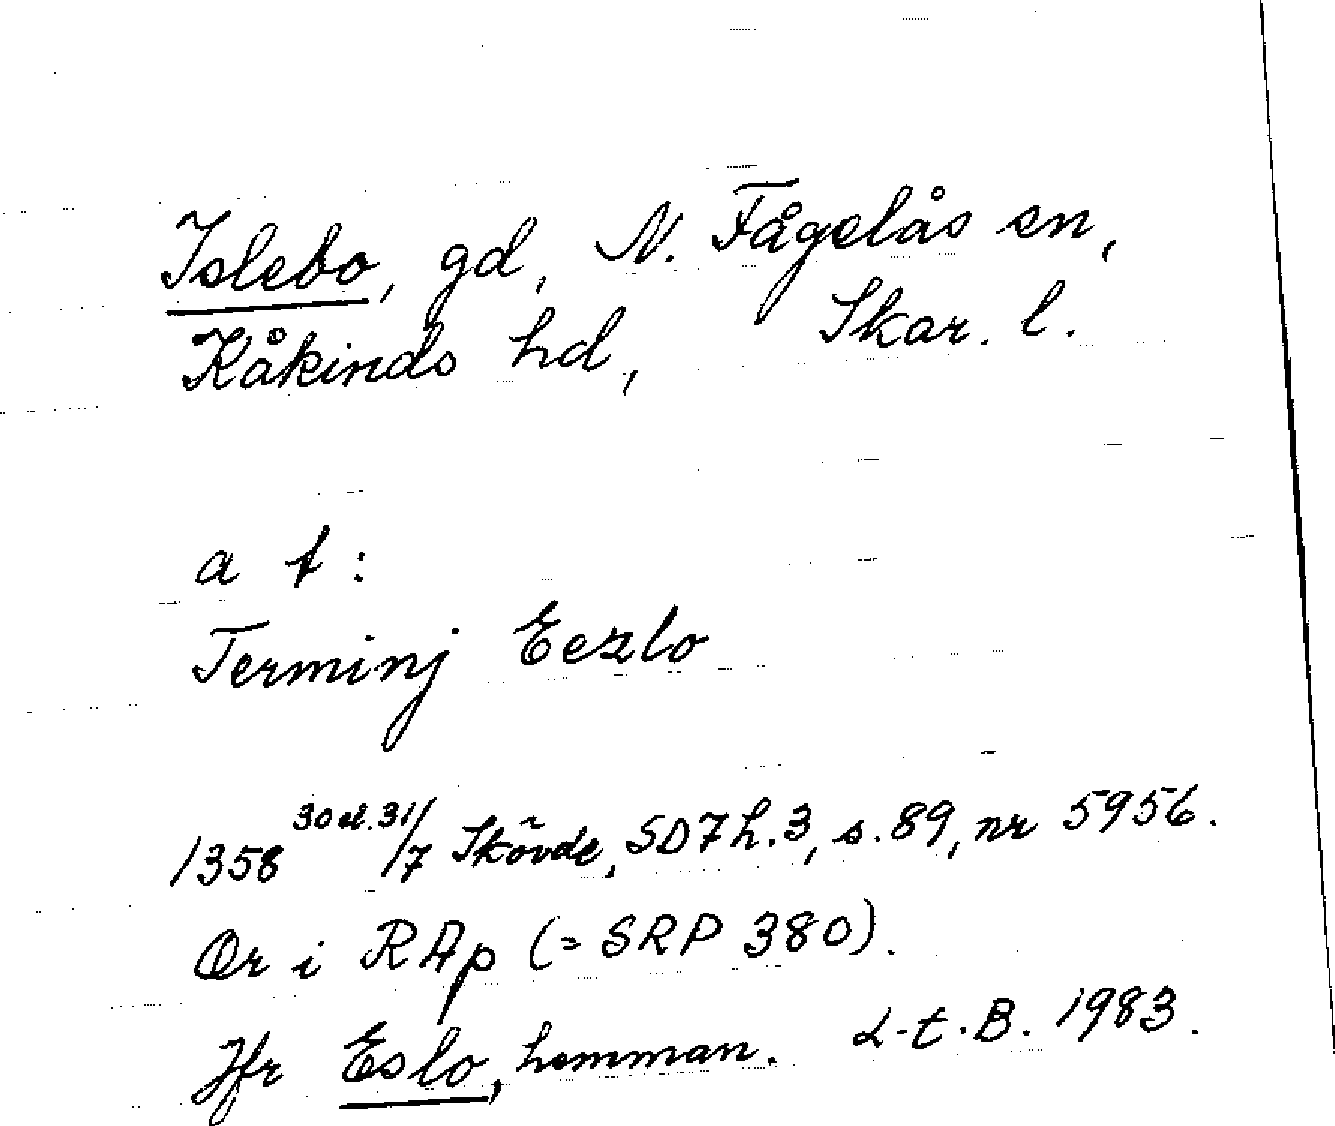 Islebo, gd, N. Fågelås sn,
Kåkinds hd, Skar. l.
a t:
Terminj Eezlo
1358 30 el. 31/7 Skövde, SD7 h.3, s.89, nr 5956.
Or i RAp (= SRP 380).
Jfr Eslo, hemman. L-t.B. 1983.